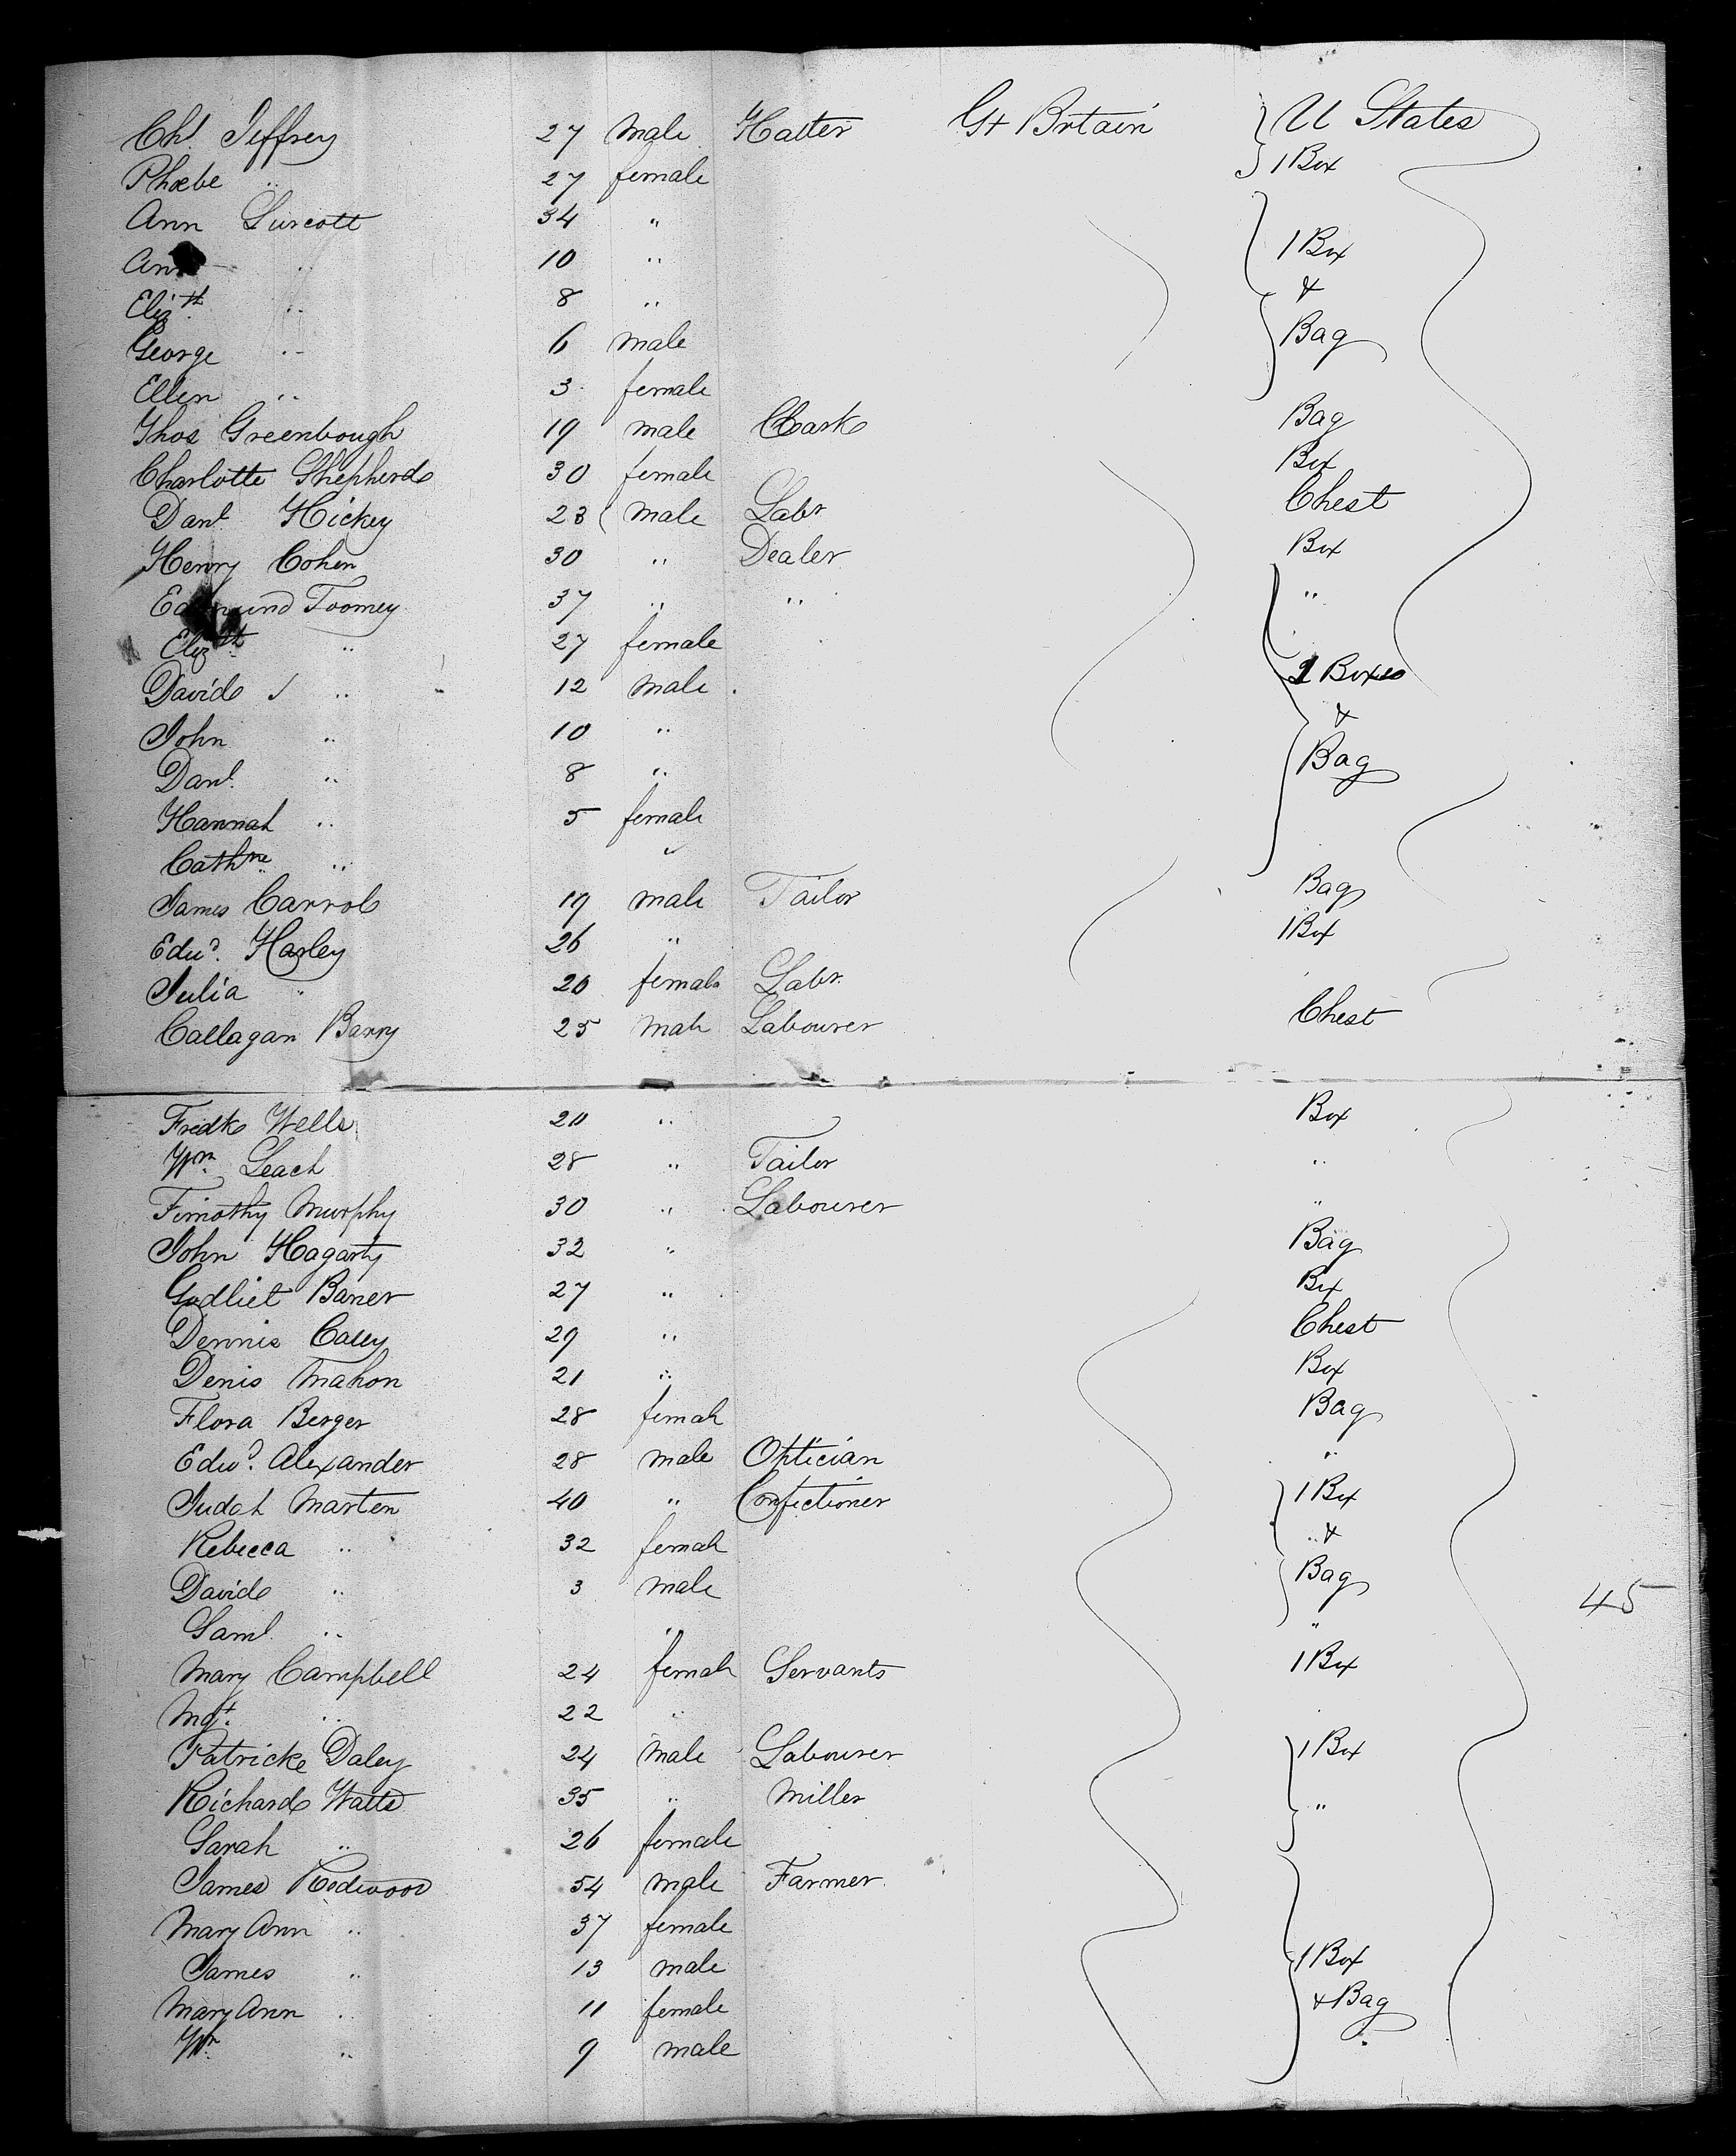 Chs. Jeffrey 27 male Hatter Gt Brtain U States
Phœbe " 27 female 1 Box
Ann Surcott 34 "
Ann " 10 " 1 Box
Elizth " 8 " &
George " 6 male Bag
Ellen " 3 female
Thos Greenbough 19 male Clark Bag
Charlotte Shepherd 30 female Box
Danl Hickey 23 male Labr Chest
Henry Cohen 30 " Dealer Box
Edmund Toomey 37 " " "
Elizth " 27 female
David " 12 male 2 Boxes
John " 10 " &
Danl. " 8 " Bag
Hannah " 5 female
Cathne " "
James Carrol 19 male Tailor Bag
Edwd. Harley 26 " 1 Box
Julia " 20 female Labr.
Callagan Barry 25 male Labourer Chest
Fredk Wells 20 " Box
Wm. Leach 28 " Tailor "
Timothy Murphy 30 " Labourer "
John Hagarty 32 " Bag
Godliet Baner 27 " Box
Dennis Caley 29 " Chest
Denis Mahon 21 " Box
Flora Berger 28 female Bag
Edwd. Alexander 28 male Optician "
Judah Marten 40 " Confectioner 1 Box
Rebecca " 32 female " &
David " 3 male Bag
45
Saml. " " "
Mary Campbell 24 female Servants 1 Box
Mgt. " 22 "
Patrick Daley 24 male Labourer 1 Box
Richard Watts 35 " Miller "
Sarah " 26 female
James Rodwood 54 male Farmer
Mary Ann " 37 female
James " 13 male 1 Box
Mary Ann " 11 female & Bag
Wm. " 9 male